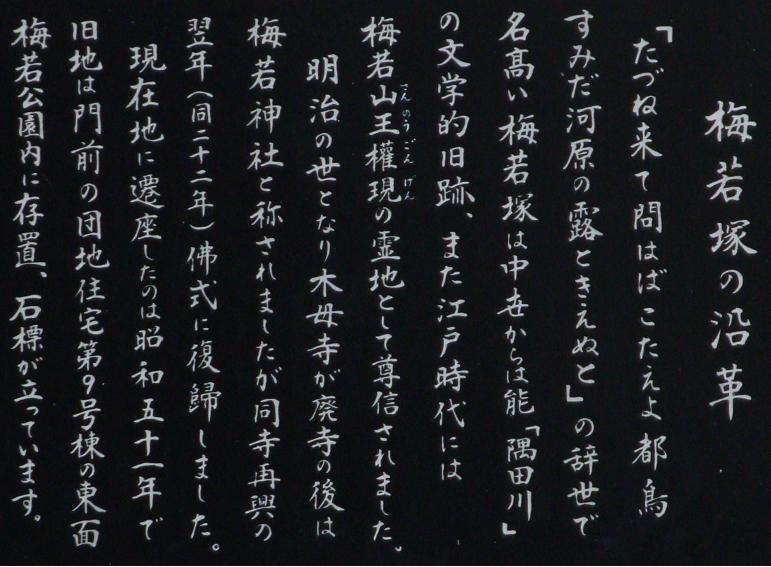 梅若塚の沿革
「たづね来て問はばこたえよ都鳥
すみだ河原の露ときえぬと」の辞世で
名高い梅若塚は中世からは能「隅田川」
の文学的旧跡、また江戸時代には
梅若山王權現の霊地として尊信されました。
さんのうごんげん
明治の世となり木母寺が廃寺の後は
梅若神社と称されましたが同寺再興の
翌年(同二十二年)佛式に復歸しました。
現在地に遷座したのは昭和五十一年で
旧地は門前の団地住宅第9号棟の東面
梅若公園内に存置、石標が立っています。